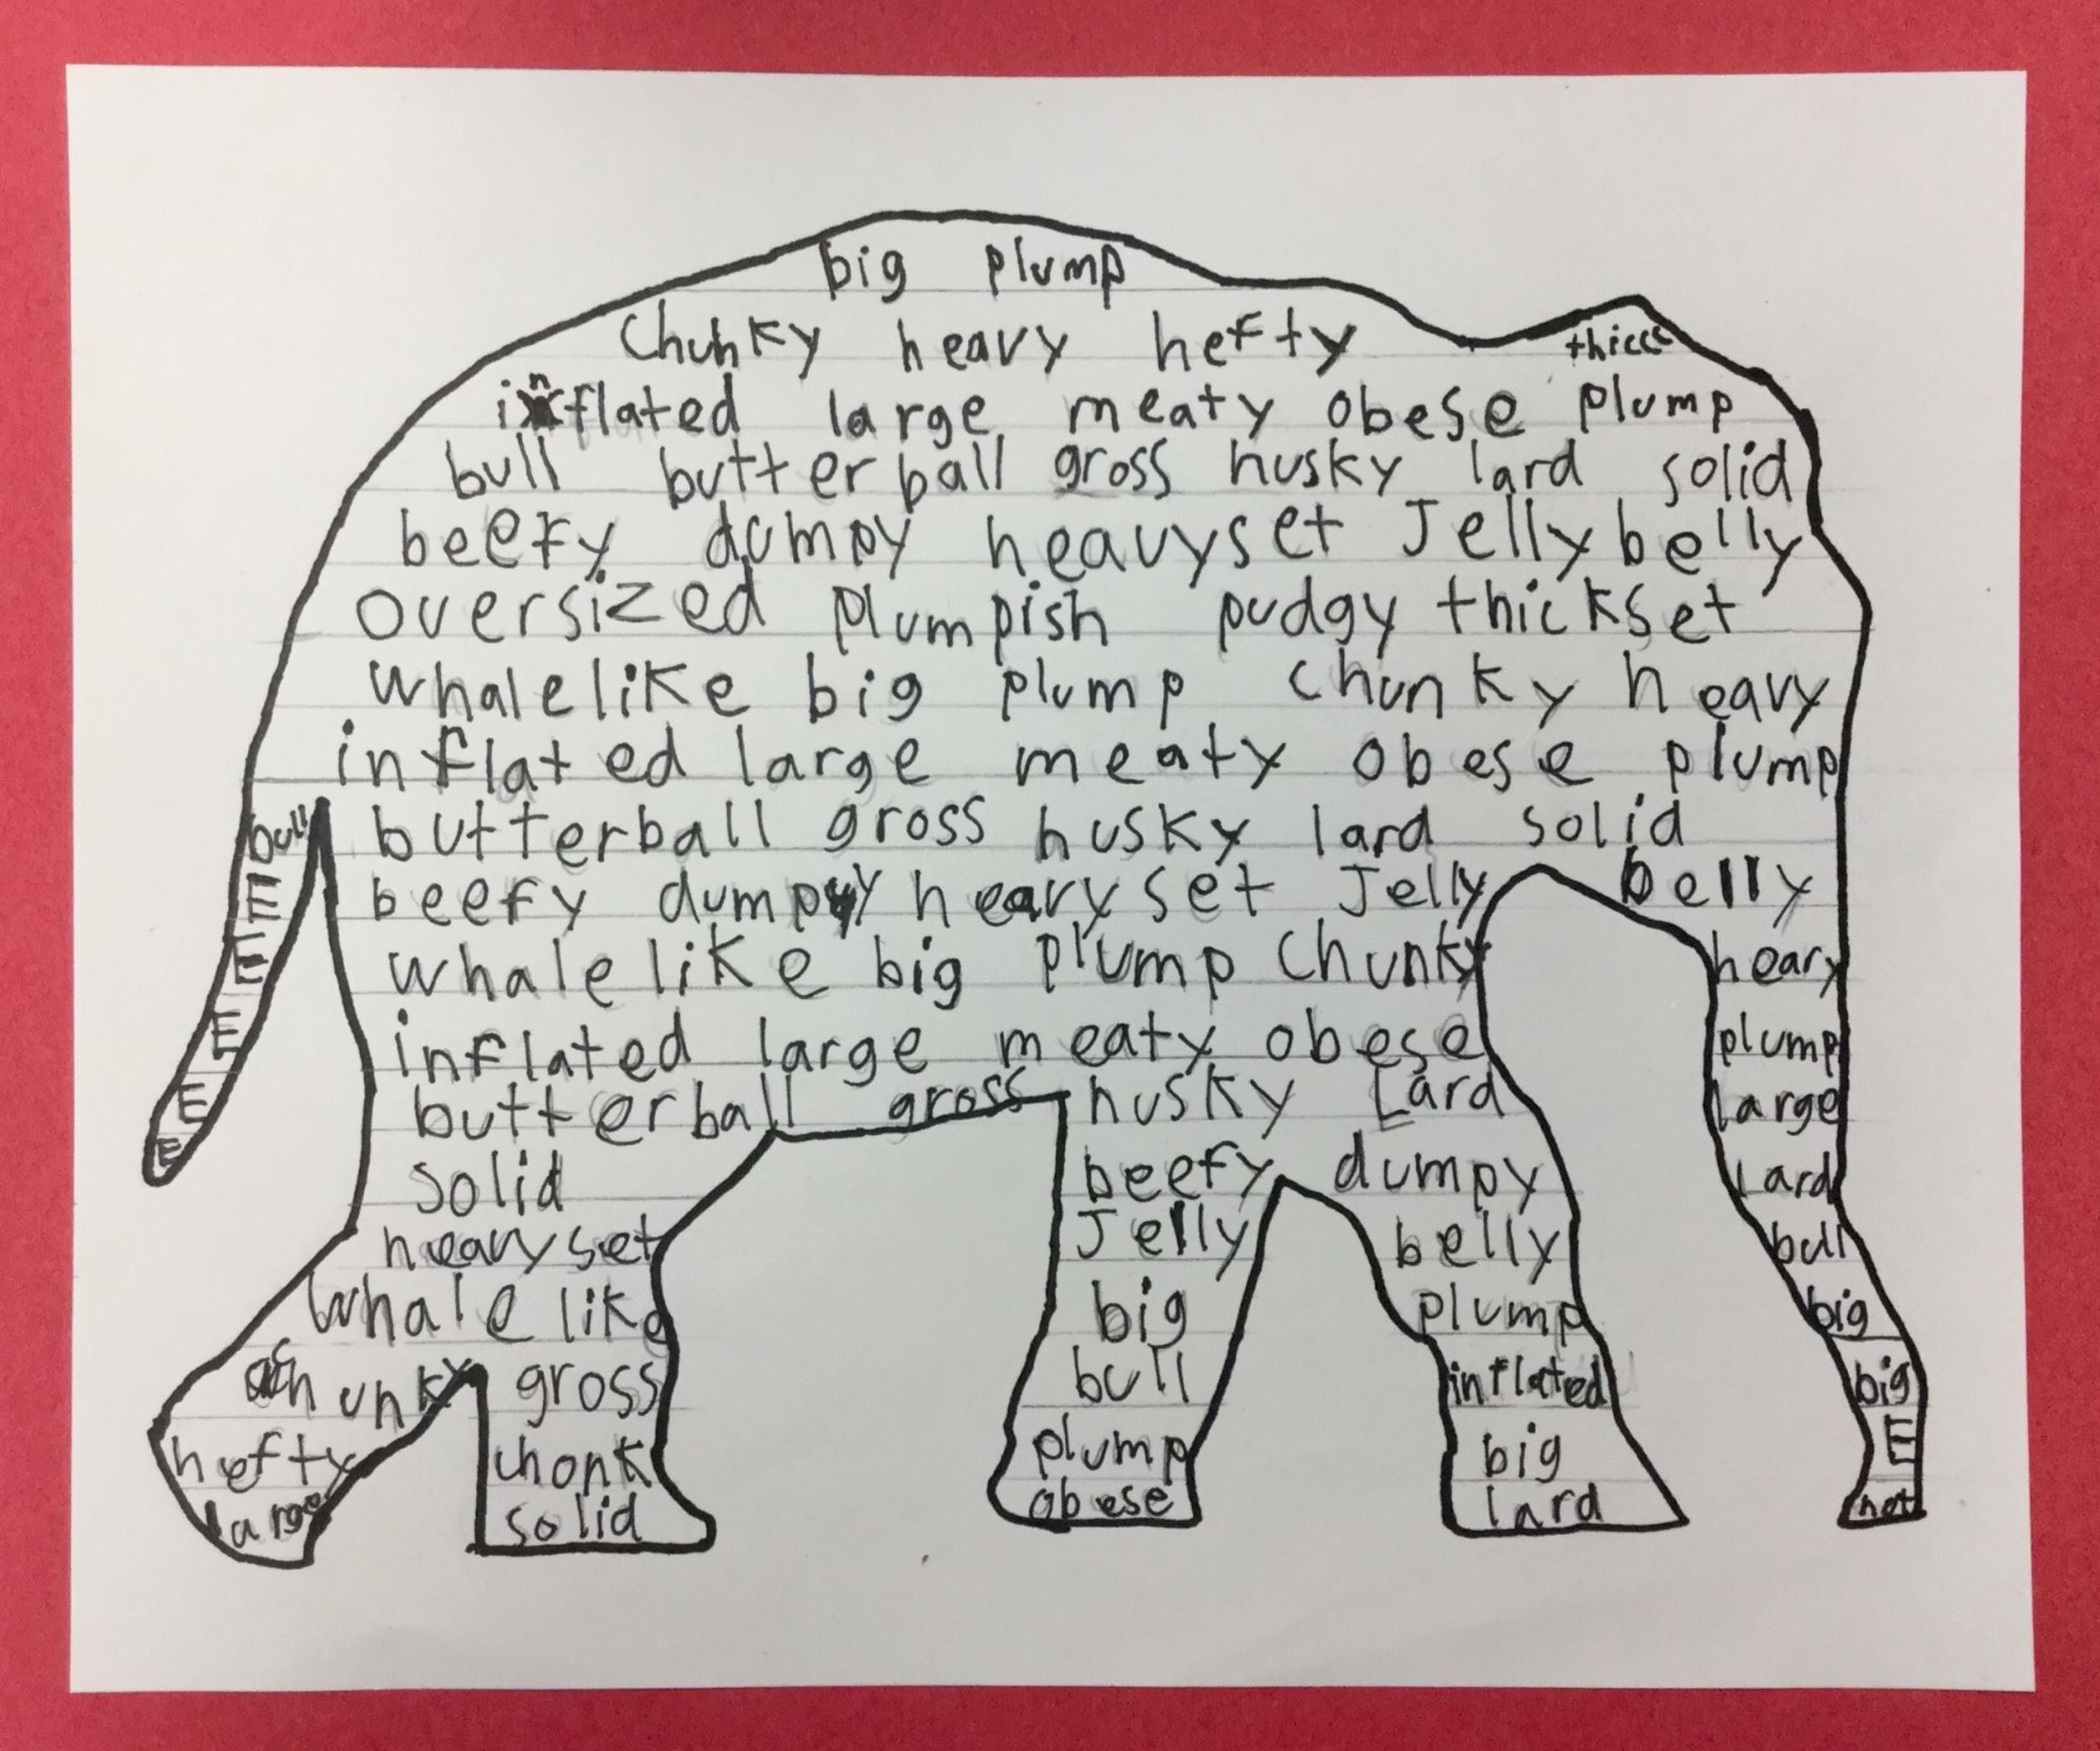 big plump
chunky heavy hefty thicc
inflated large meaty obese plump
bull butterball gross husky lard solid
beefy dumpy heavyset Jellybelly
oversized plumpish pudgy thickset
whalelike big plump chunky heavy
inflated large meaty obese plump
bull butterball gross husky lard solid
E beefy dumpy heavyset Jelly belly
E whalelike big plump chunky heavy
E inflated large meaty obese plump
E butterball gross husky Lard large
E solid beefy dumpy Lard
heavyset Jelly belly bull
whalelike big plump big
chunky gross bull inflated big
hefty chonk plump big E
large solid obese lard